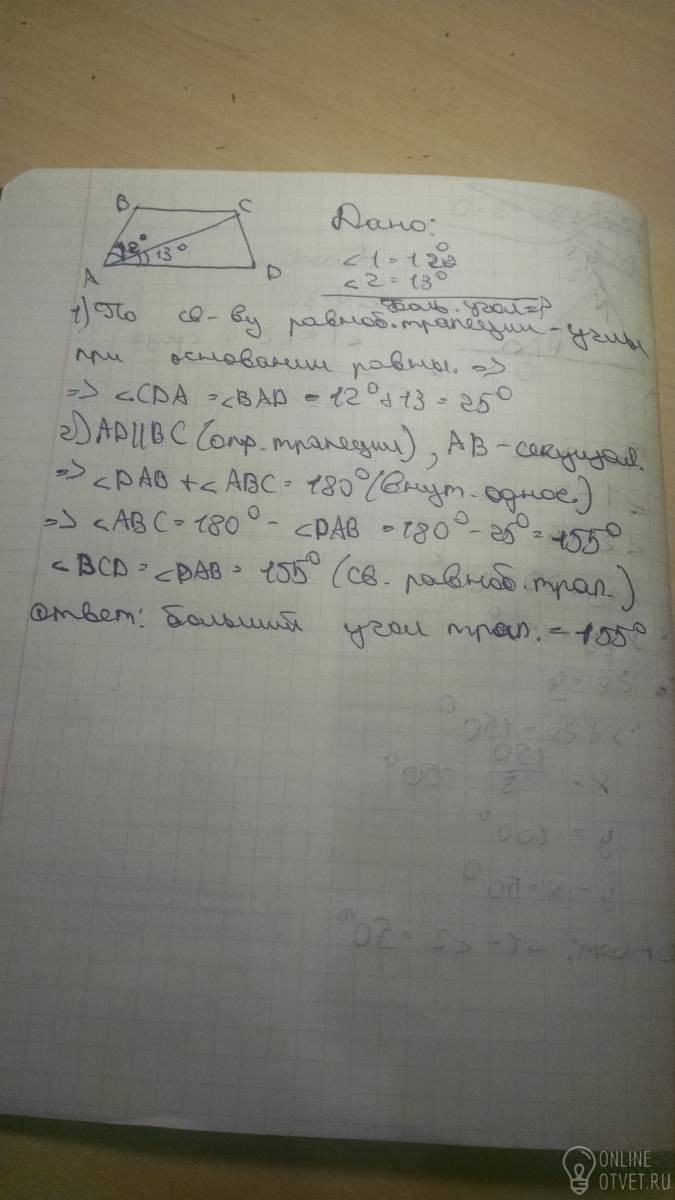 B C
12° 13°
A D
Дано:
<1 = 12°
<2 = 13°
Боль. угол = ?
1) По св-ву равноб. трапеции - углы
при основании равны. =>
=> <CDA = <BAD = 12° + 13 = 25°
2) AD||BC (опр. трапеции), AB - секущая.
=> <DAB + <ABC = 180° (внут. однос.)
=> <ABC = 180° - <DAB = 180° - 25° = 155°
<BCD = <DAB = 155° (св. равноб. трап.)
Ответ: больший угол трап. = 155°
ONLINE
OTVET.RU